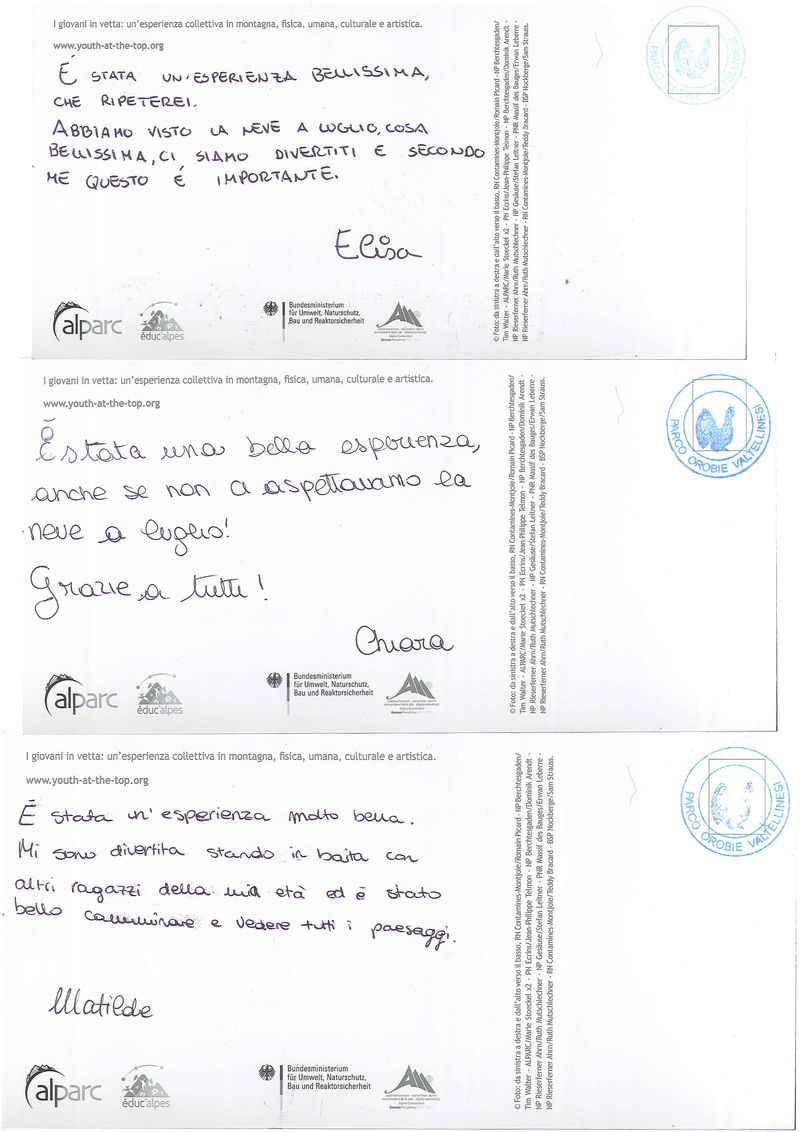 I giovani in vetta: un'esperienza collettiva in montagna, fisica, umana, culturale e artistica.
www.youth-at-the-top.org
É STATA UN'ESPERIENZA BELLISSIMA,
CHE RIPETEREI.
ABBIAMO VISTO LA NEVE A LUGLIO, COSA
BELLISSIMA, CI SIAMO DIVERTITI E SECONDO
ME QUESTO É IMPORTANTE.
Elisa
alparc
éduc'alpes
Bundesministerium
für Umwelt, Naturschutz,
Bau und Reaktorsicherheit
© Foto: da sinistra a destra e dall'alto verso il basso, RN Contamines-Montjoie/Romain Picard - NP Berchtesgaden/
Tim Walter - ALPARC/Marie Stoeckel x2 - PN Ecrins/Jean-Philippe Telmon - NP Berchtesgaden/Dominik Arendt -
NP Rieserferner Ahrn/Ruth Mutschlechner - NP Gesäuse/Stefan Leitner - PNR Massif des Bauges/Erwan Leberre -
NP Rieserferner Ahrn/Ruth Mutschlechner - RN Contamines-Montjoie/Teddy Bracard - BSP Nockberge/Sam Strauss.
PARCO VALTELLINESI
I giovani in vetta: un'esperienza collettiva in montagna, fisica, umana, culturale e artistica.
www.youth-at-the-top.org
È stata una bella esperienza,
anche se non ci aspettavamo la
neve a luglio!
Grazie a tutti!
Chiara
alparc
éduc'alpes
Bundesministerium
für Umwelt, Naturschutz,
Bau und Reaktorsicherheit
© Foto: da sinistra a destra e dall'alto verso il basso, RN Contamines-Montjoie/Romain Picard - NP Berchtesgaden/
Tim Walter - ALPARC/Marie Stoeckel x2 - PN Ecrins/Jean-Philippe Telmon - NP Berchtesgaden/Dominik Arendt -
NP Rieserferner Ahrn/Ruth Mutschlechner - NP Gesäuse/Stefan Leitner - PNR Massif des Bauges/Erwan Leberre -
NP Rieserferner Ahrn/Ruth Mutschlechner - RN Contamines-Montjoie/Teddy Bracard - BSP Nockberge/Sam Strauss.
PARCO OROBIE VALTELLINESI
I giovani in vetta: un'esperienza collettiva in montagna, fisica, umana, culturale e artistica.
www.youth-at-the-top.org
È stata un'esperienza molto bella.
Mi sono divertita stando in baita con
altri ragazzi della mia età ed è stato
bello camminare e vedere tutti i paesaggi.
Matilde
alparc
éduc'alpes
Bundesministerium
für Umwelt, Naturschutz,
Bau und Reaktorsicherheit
© Foto: da sinistra a destra e dall'alto verso il basso, RN Contamines-Montjoie/Romain Picard - NP Berchtesgaden/
Tim Walter - ALPARC/Marie Stoeckel x2 - PN Ecrins/Jean-Philippe Telmon - NP Berchtesgaden/Dominik Arendt -
NP Rieserferner Ahrn/Ruth Mutschlechner - NP Gesäuse/Stefan Leitner - PNR Massif des Bauges/Erwan Leberre -
NP Rieserferner Ahrn/Ruth Mutschlechner - RN Contamines-Montjoie/Teddy Bracard - BSP Nockberge/Sam Strauss.
PARCO OROBIE VALTELLINESI